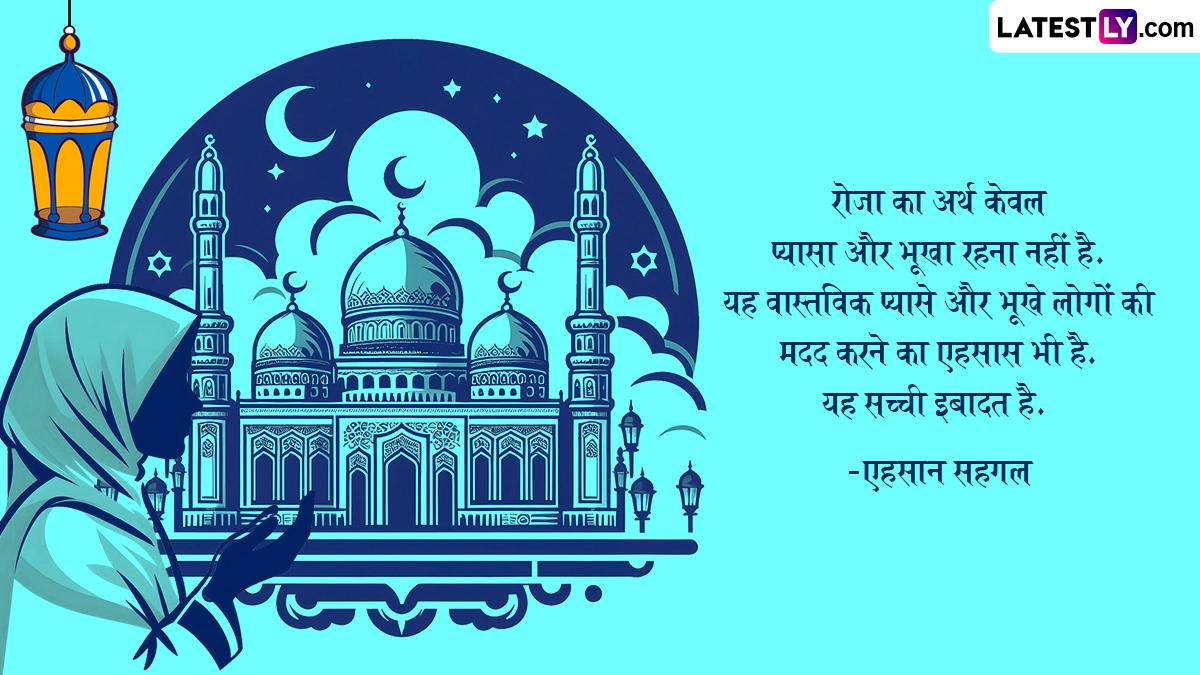 LATESTLY.com
रोजा का अर्थ केवल
प्यासा और भूखा रहना नहीं है.
यह वास्तविक प्यासे और भूखे लोगों की
मदद करने का एहसास भी है.
यह सच्ची इबादत है.
-एहसान सहगल